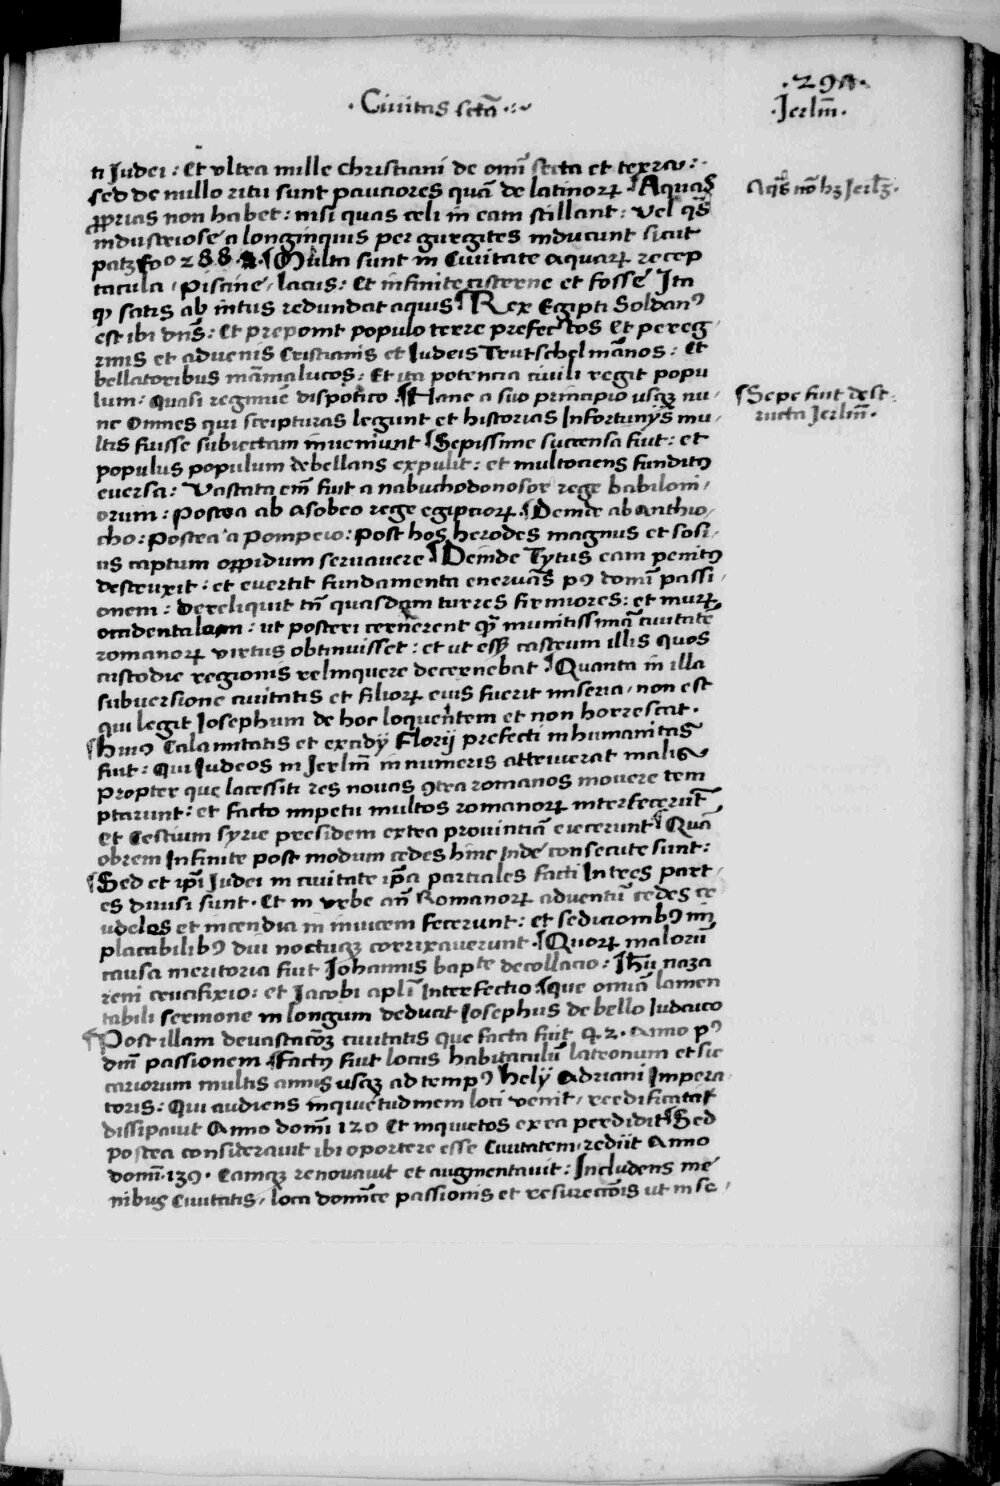 · Ciuitas sctã ·
· 29
· Jerlm̄ ·
ti Judei : Et vltra mille christiani de om̄i secta et terra :
sed de nullo ritu sunt pauciores quã de latinorꝝ ¶ Aquas
ꝓprias non habet : nisi quas celi in eam stillant : vel qs̃
industriose a longinquis per gurgites inducunt sicut
patꝫ fo 288 ¶ Multa sunt in Ciuitate aquarꝝ recep
tacula / piscine / lacus : Et infinite cisterne et fosse Ita
ꝙ satis ab intus redundat aquis ¶ Rex Egipti Soldanꝰ
est ibi dn̄s : Et preponit populo terre prefectos Et pereg
rinis et aduenis Cristianis et Judeis Trutschelmãnos : Et
bellatoribus mãmalucos : Et ita potencia ciuili regit popu
lum : quasi regimine dispotico ¶ Hanc a suo principio usqꝫ nu /
nc Omnes qui scripturas legunt et historias Infortunijs mu /
ltis fuisse subiectam inueniunt ¶ Sepissime succensa fuit : et
populus populum debellans expulit : et multociens funditꝰ
euersa : Vastata em̄ fuit a nabuchodonosor rege babiloni /
orum : Postea ab asobeo rege egiptiorꝝ ¶ Deinde ab Anthio /
cho : postea a Pompeio : Post hos herodes magnus et sosi /
us captum oppidum seruauere ¶ Deinde Tytus eam penitꝰ
destruxit : et euertit fundamenta eneruãs pꝰ domī passi /
onem : Dereliquit tn̄ quasdam turres firmiores : et murꝝ
occidentalem : ut posteri cernerent qꝫ munitissimã ciuitatẽ
romanorꝝ virtus obtinuisset : et ut esset castrum illis quos
custodie regionis relinquere decernebat ¶ Quanta in illa
subuersione ciuitatis et filiorꝝ eius fuerit miseria / non est
qui legit Josephum de hoc loquentem et non horrescat ·
¶ huiꝰ Calamitatis et excidij Florij prefecti inhumanitas
fuit : Qui Judeos in Jerlm̄ innumeris attriuerat malis
propter que lacessiti res nouas ꝯtra romanos mouere tem
ptarunt : et facto impetu multos romanorꝝ interfecerunt
Et Cestium syrie presidem extra prouinciã eiecerunt ¶ Quã
obrem Infinite post modum cedes hinc Inde consecute sunt :
¶ Sed et ip̄i Judei in ciuitate ip̄a parciales facti In tres part
es diuisi sunt · Et in vrbe an̄ Romanorꝝ aduentũ cedes cr
udeles et incendia in inuicem fecerunt : et sedicionibꝰ im
placabilibꝰ diu noctuqꝫ corrixauerunt ¶ Quorꝝ malorũ
causa meritoria fuit Johannis bapte decollacio : Jh̄u naza
reni crucifixio : et Jacobi apl̄i Interfectio ¶ que omīa lamen
tabili sermone in longum deducit Josephus de bello Judaico
¶ Post illam deuastacõꝫ ciuitatis que facta fuit 42 · Anno pꝰ
dnī passionem ¶ Factꝰ fuit locus habitaculũ latronum et sic
cariorum multis annis usqꝫ ad tempꝰ helij Adriani Impera /
toris : Qui audiens inquietudinem loci venit / reedificitat
dissipauit Anno domī 120 Et inquietos ex ea perdidit ¶ Sed
postea considerauit ibi oportere esse Ciuitatem / redijt Anno
domī · 139 · Eamqꝫ renouauit et augmentauit : Includens me
nibus Ciuitatis / loca domīce passionis et resurectõis ut in se /
Aqs̃ nō hꝫ Jerlꝫ ·
¶ Sepe fuit dest
ructa Jerlm̄ ·